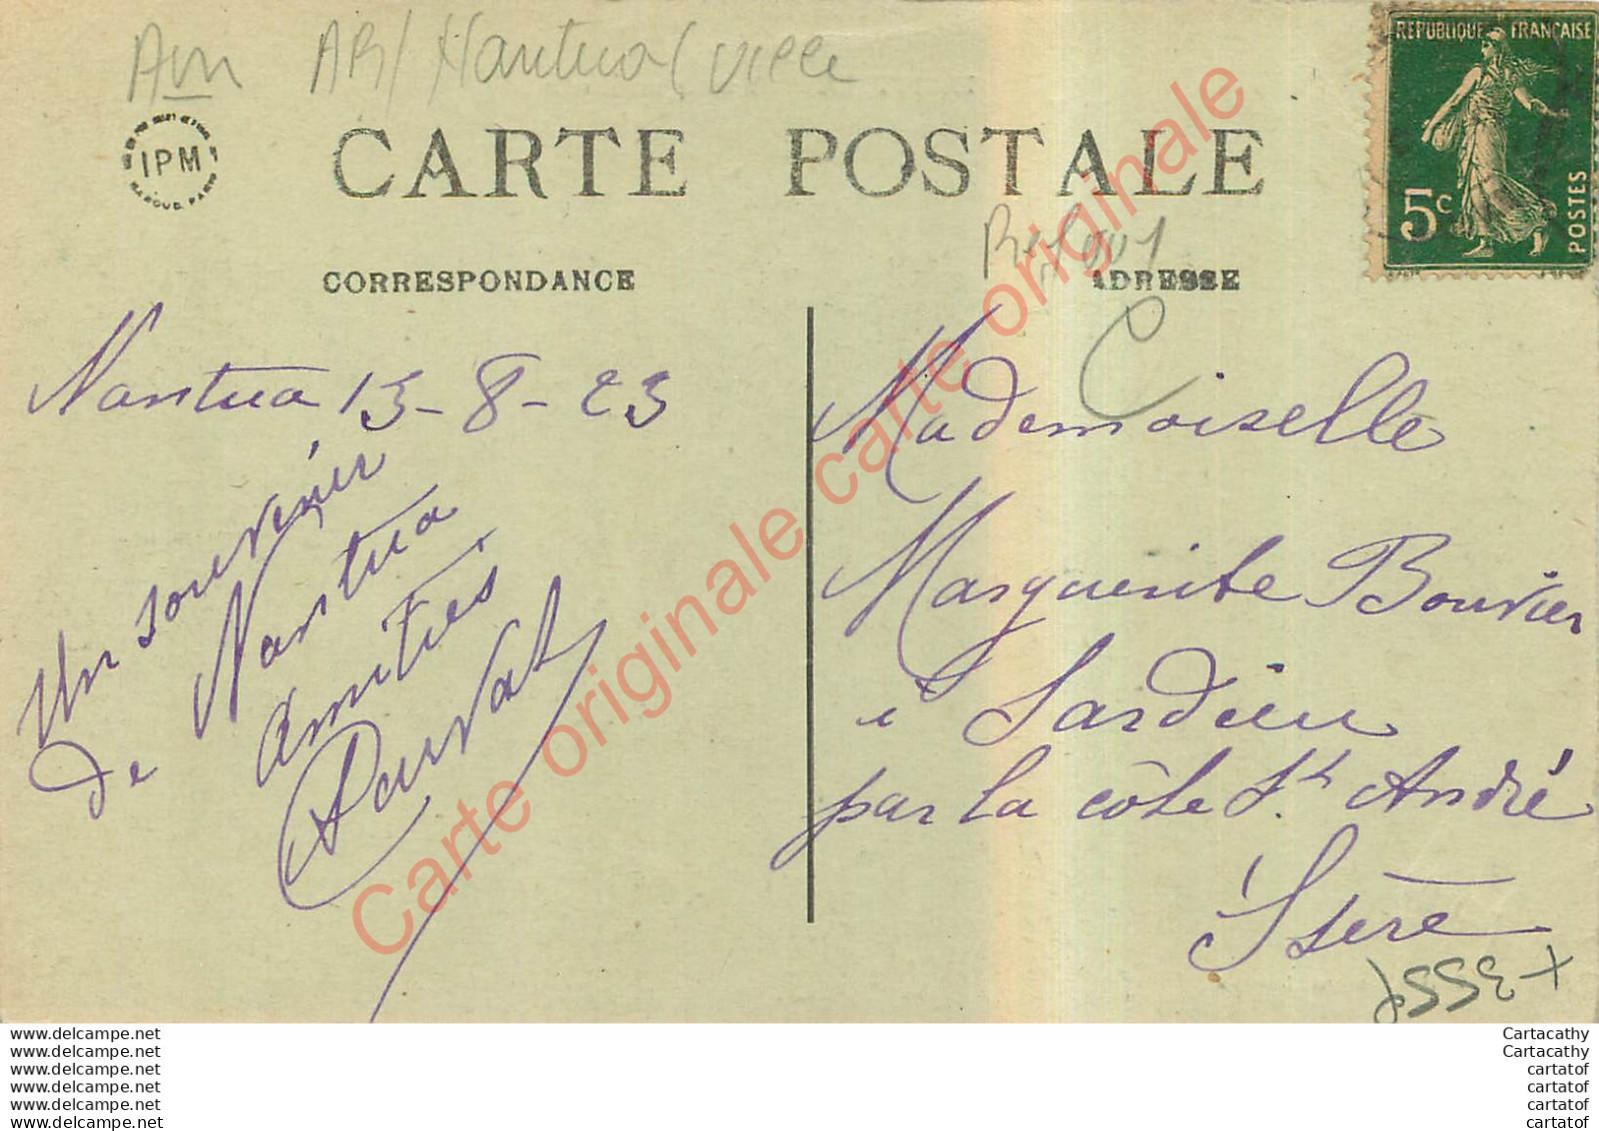 Ain AR/ Nantua (ville
IPM
CARTE POSTALE
REPUBLIQUE FRANÇAISE
5c
POSTES
CORRESPONDANCE
ADRESSE
Nantua 13-8-23
Un souvenir
de Nantua
Amitiés
Mademoiselle
Marguerite Bouvier
à Sardieu
par la côte St. André
Isère
Carte originale carte originale
www.delcampe.net
www.delcampe.net
www.delcampe.net
www.delcampe.net
www.delcampe.net
www.delcampe.net
Cartacathy
Cartacathy
cartatof
cartatof
cartatof
cartatof